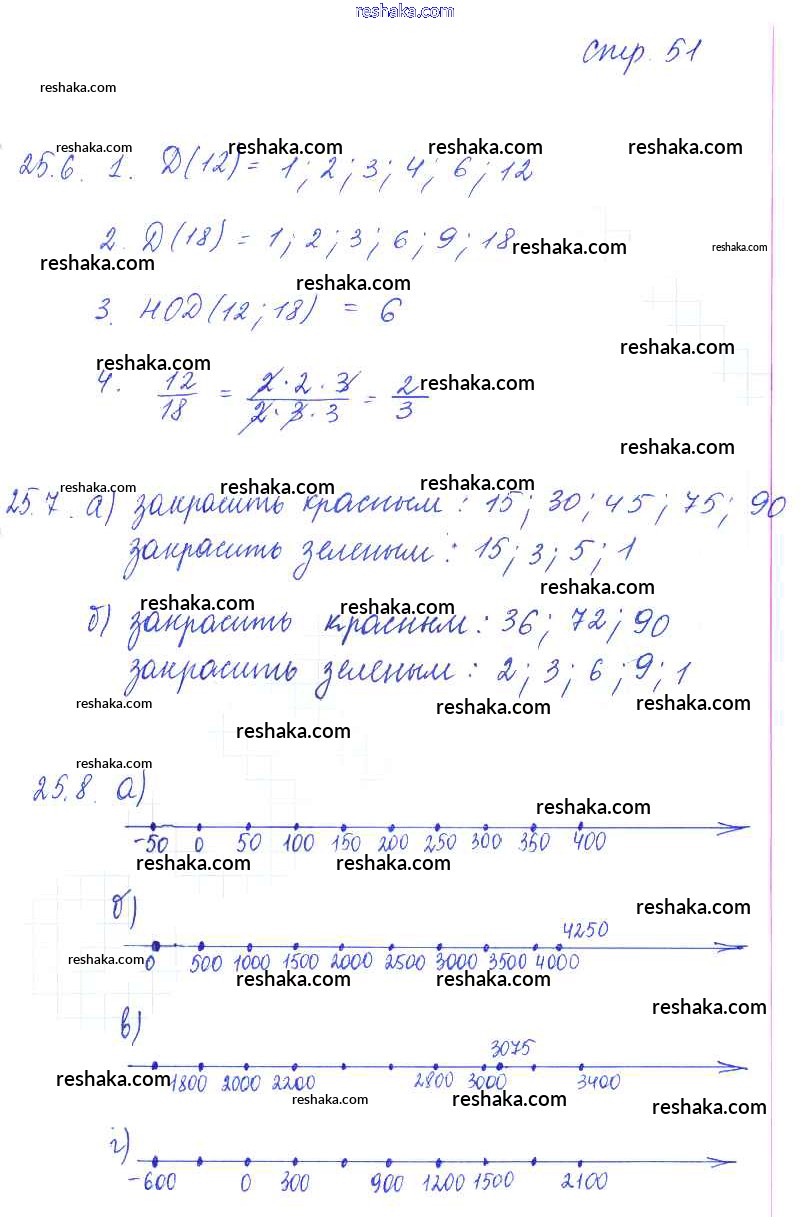 reshaka.com
стр. 51
reshaka.com
reshaka.com reshaka.com reshaka.com reshaka.com
25.6. 1. Д(12) = 1; 2; 3; 4; 6; 12
2. Д(18) = 1; 2; 3; 6; 9; 18
reshaka.com reshaka.com
reshaka.com
reshaka.com
3. НОД(12; 18) = 6
reshaka.com
reshaka.com
4. 12/18 = 2·2·3/2·3·3 = 2/3
reshaka.com
reshaka.com
reshaka.com reshaka.com reshaka.com
25.7. а) закрасить красным: 15; 30; 45; 75; 90
закрасить зеленым: 15; 3; 5; 1
reshaka.com
reshaka.com reshaka.com
б) закрасить красным: 36; 72; 90
закрасить зеленым: 2; 3; 6; 9; 1
reshaka.com reshaka.com reshaka.com
reshaka.com
reshaka.com
25.8. а)
reshaka.com
-50 0 50 100 150 200 250 300 350 400
reshaka.com reshaka.com
б)
reshaka.com
4250
reshaka.com
0 500 1000 1500 2000 2500 3000 3500 4000
reshaka.com reshaka.com
reshaka.com
в)
3075
reshaka.com
1800 2000 2200 2800 3000 3400
reshaka.com reshaka.com
reshaka.com
г)
-600 0 300 900 1200 1500 2100